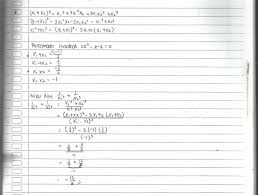 (x₁+x₂)³ = x₁³ + 3x₁²x₂ + 3x₁x₂² + x₂³
(x₁+x₂)³ - 3x₁²x₂ - 3x₁x₂² = x₁³ + x₂³
x₁³ + x₂³ = (x₁+x₂)³ - 3x₁x₂ (x₁+x₂)
Persamaan kuadrat 2x² - x - 2 = 0
x₁ + x₂ =
x₁ x₂ =
x₁ x₂ = -1
Nilai dari 1/x₁³ + 1/x₂³
1/x₁³ + 1/x₂³ = x₁³ + x₂³
= (x₁+x₂)³ - 3x₁x₂ (x₁+x₂)
(x₁ x₂)³
= (1/2)³ - 3(-1)(1/2)
(-1)³
= 1/8 + 3/2
= 1/8 + 12/8
= -13/8